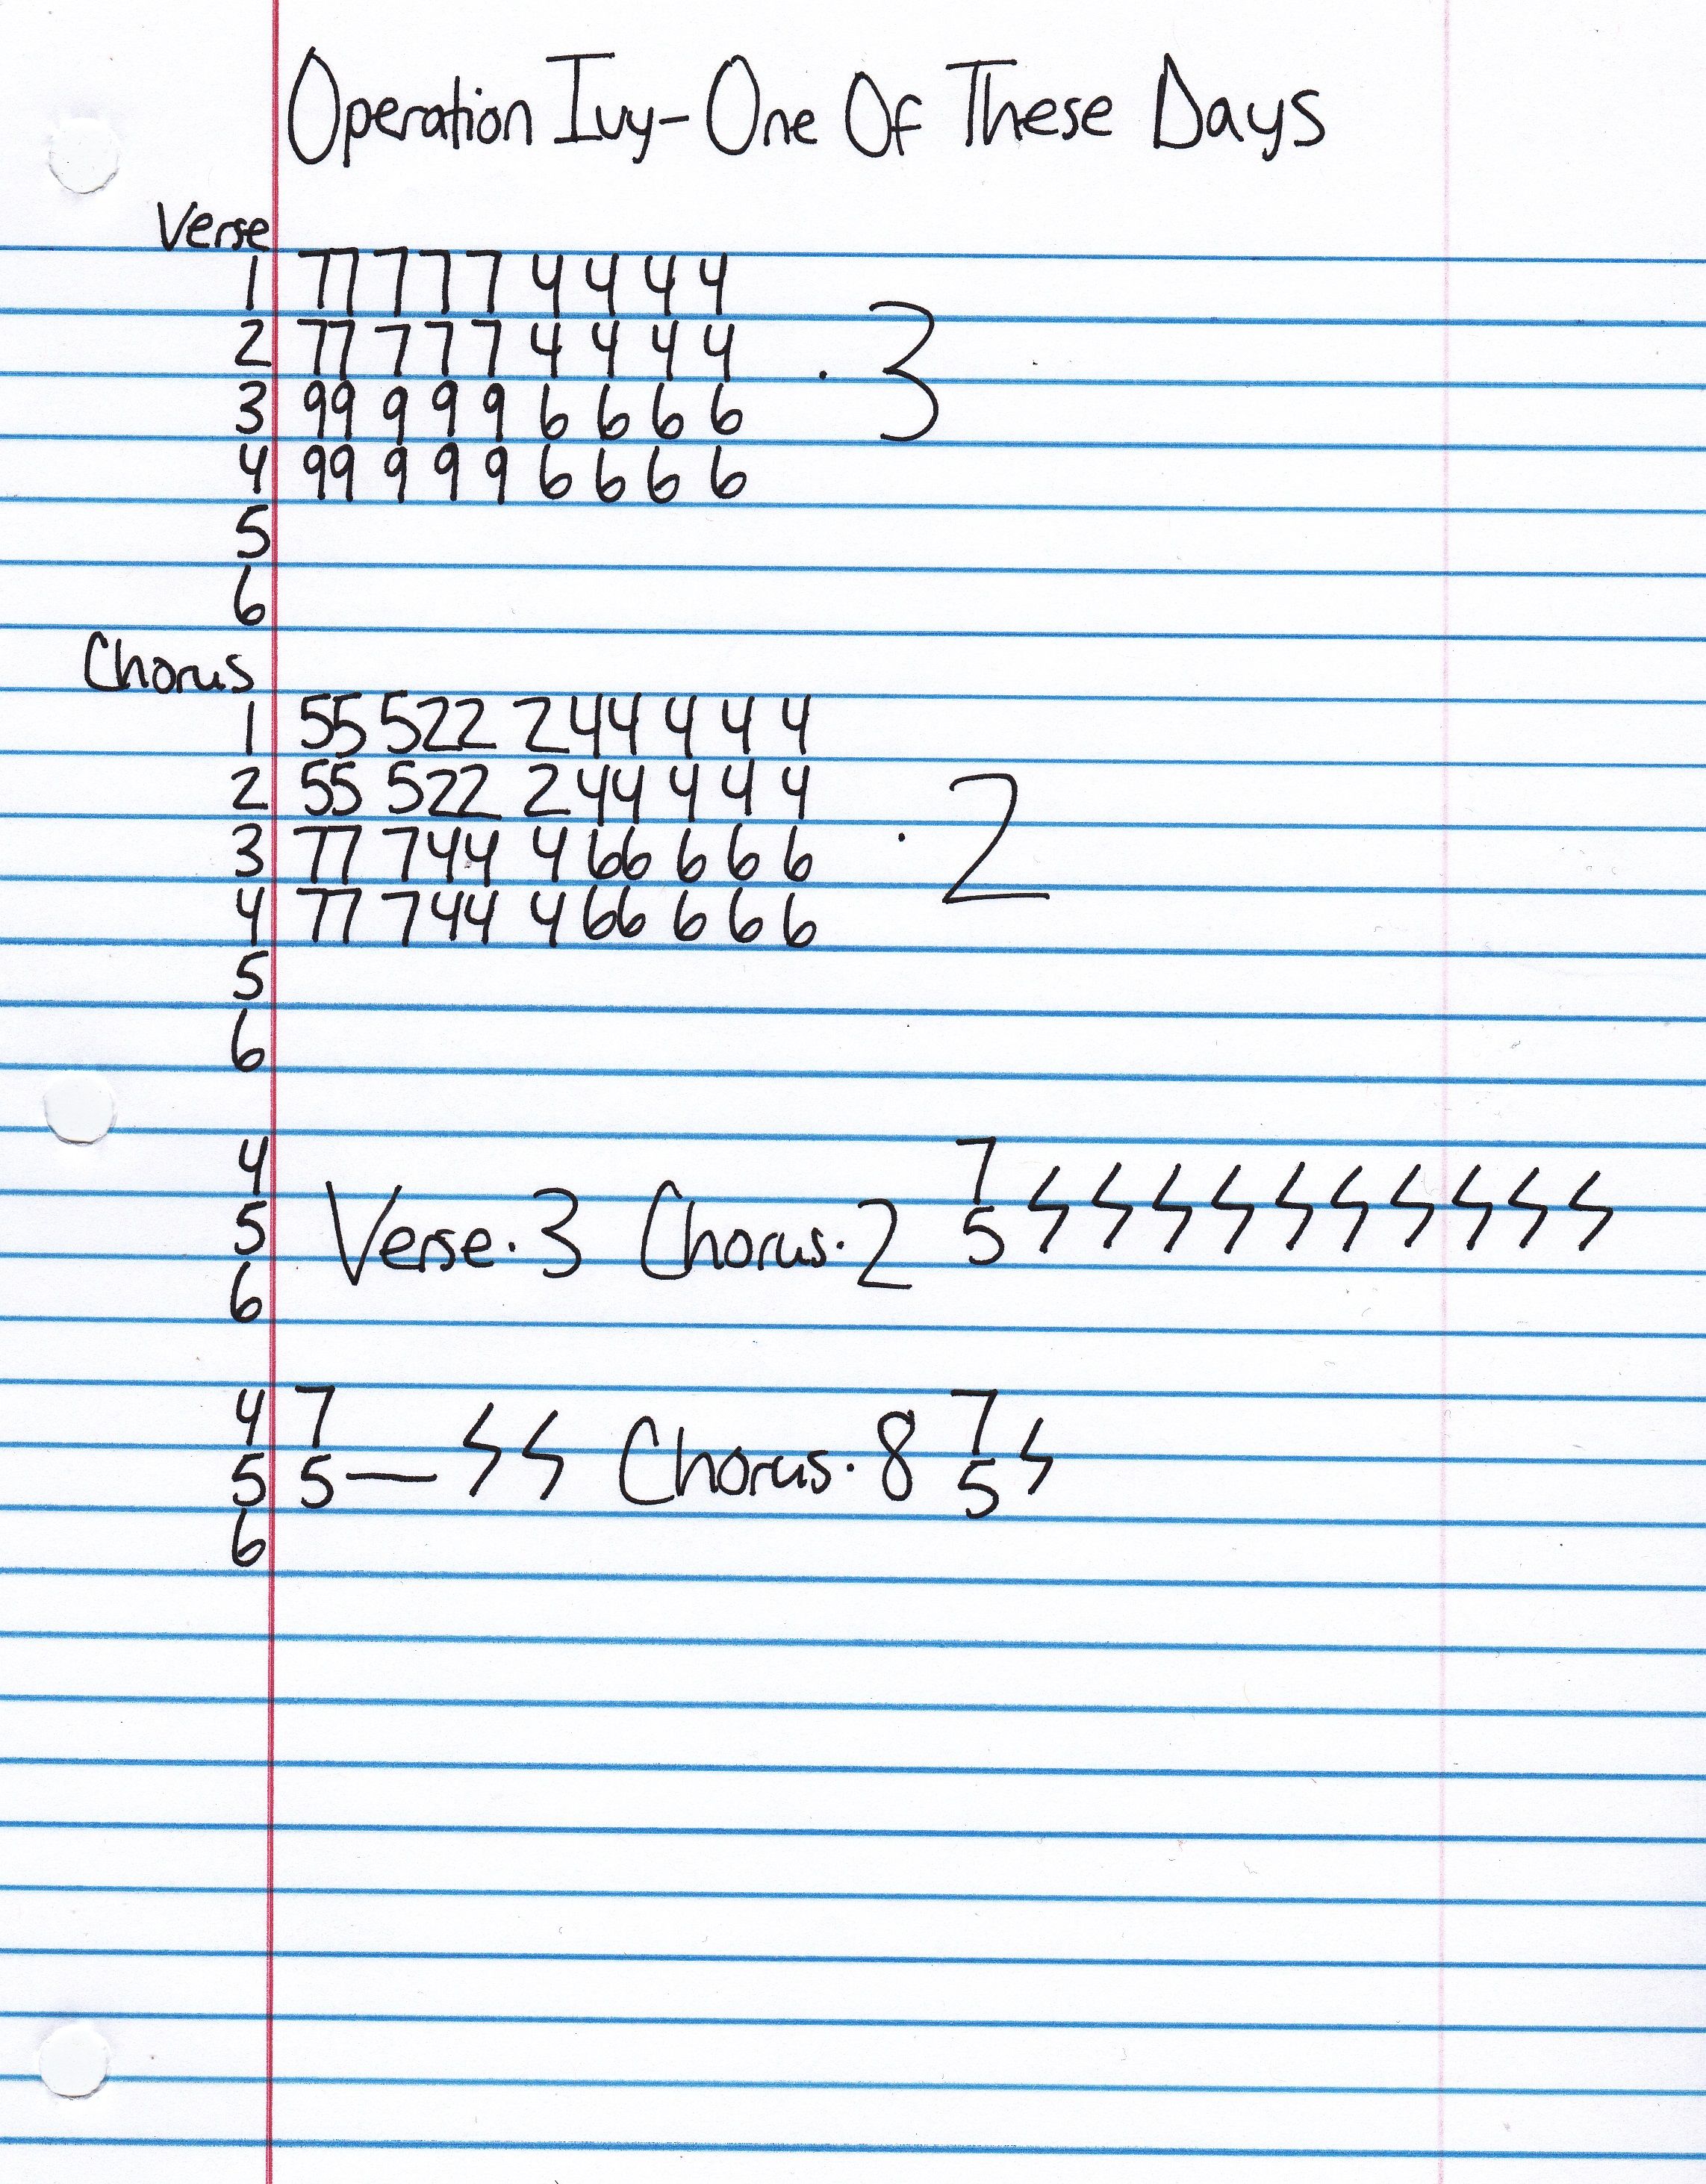 Operation Ivy-One Of These Days
Verse
1 77 7 7 7 4 4 4 4
2 77 7 7 7 4 4 4 4 · 3
3 99 9 9 9 6 6 6 6
4 99 9 9 9 6 6 6 6
5
6
Chorus
1 55 522 244 4 4 4
2 55 522 244 4 4 4
3 77 744 4 66 6 6 6 · 2
4 77 744 4 66 6 6 6
5
6
4 7
5 Verse·3 Chorus·2 5
6
4 7 7
5 5— Chorus·8 5
6